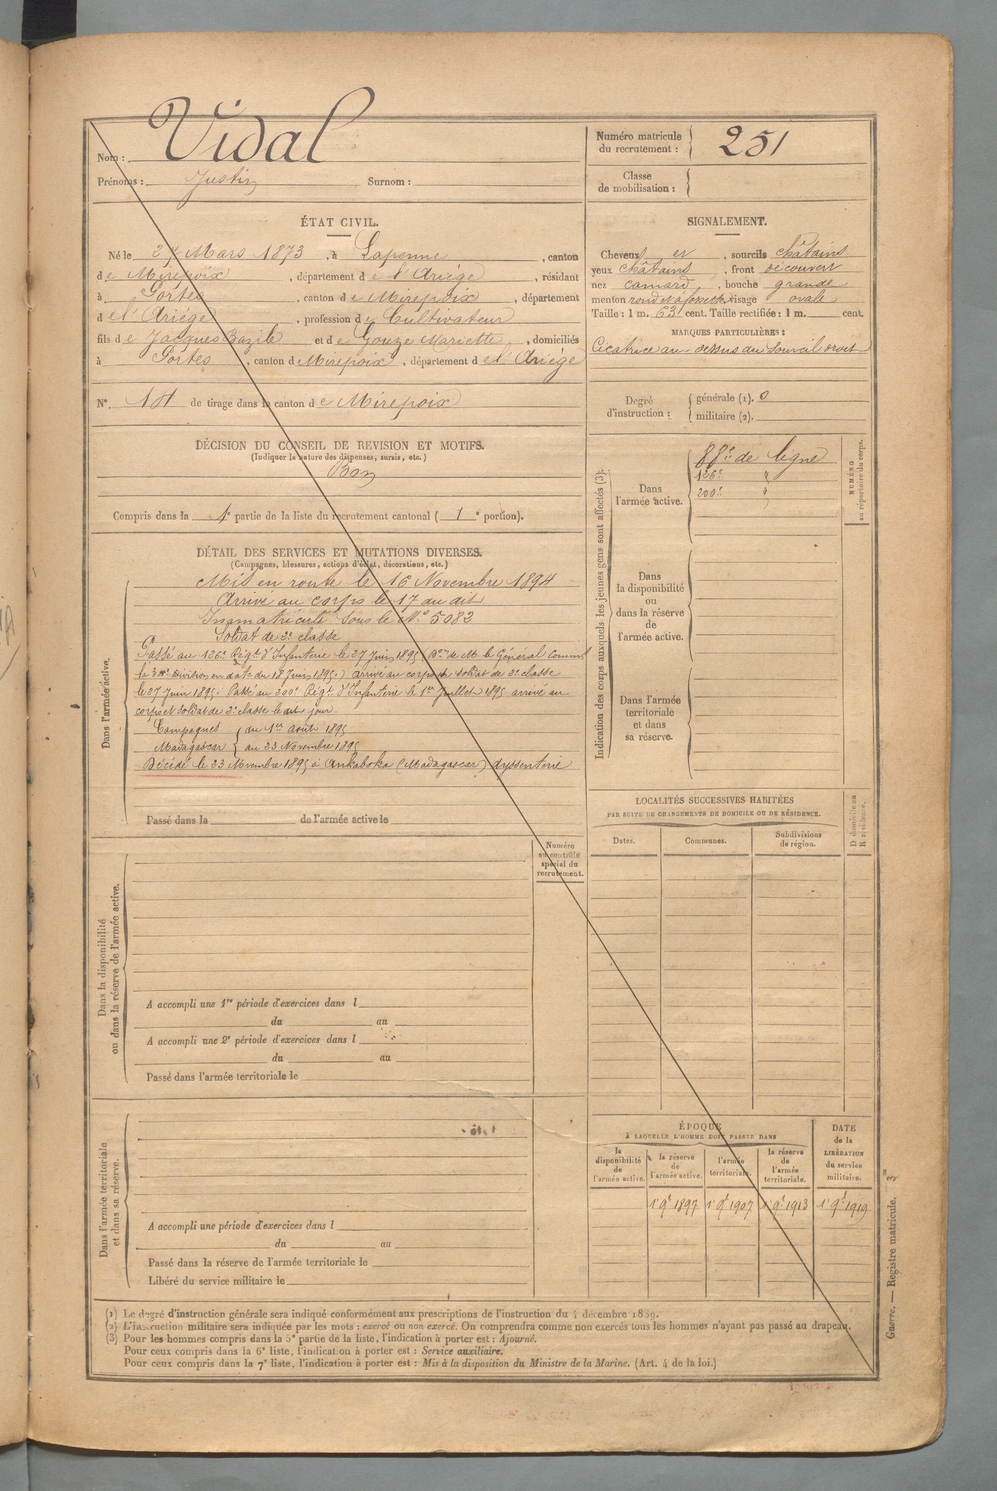 Nom : Vidal
Prénoms : Justin Surnom :
Numéro matricule du recrutement : 251
Classe de mobilisation :
ÉTAT CIVIL.
Né le 27 Mars 1873, à Lapenne, canton
de Mirepoix, département de l'Ariège, résidant
à Portes, canton de Mirepoix, département
de l'Ariège, profession de Cultivateur
fils de Jacques Bazile et de Gouze Mariette, domiciliés
à Portes, canton de Mirepoix, département de l'Ariège
N°. de tirage dans le canton de Mirepoix
SIGNALEMENT.
Cheveux et, sourcils châtains
yeux châtains, front découvert
nez camard, bouche grande
menton rond et à fossette visage ovale
Taille : 1 m. 63 cent. Taille rectifiée : 1 m. cent.
MARQUES PARTICULIÈRES :
Cicatrice au-dessus du sourcil droit
Degré d'instruction : générale (1). 0
militaire (2).
DÉCISION DU CONSEIL DE REVISION ET MOTIFS.
(Indiquer la nature des dispenses, sursis, etc.)
Bon
Compris dans la 1e partie de la liste du recrutement cantonal ( 1e portion).
DÉTAIL DES SERVICES ET MUTATIONS DIVERSES.
(Campagnes, blessures, actions d'éclat, décorations, etc.)
Dans l'armée active.
Mis en route le 16 Novembre 1894
Arrivé au corps le 17 au dit
Immatriculé sous le N° 5082
Soldat de 2e classe
Passé au 126e Régt d'Infanterie le 27 Juin 1895 (Don de M. le Général Commt
la 34e Division en date du 18 Juin 1895.) arrivé au corps et soldat de 2e classe
le 27 Juin 1895. Passé au 200e Régt d'Infanterie le 1er Juillet 1895 arrivé au
corps et soldat de 2e classe le dit jour
Campagnes { du 1er août 1895
Madagascar { au 23 Novembre 1895
Décédé le 23 Novembre 1895 à Ankaboka (Madagascar) dyssenterie
Passé dans la de l'armée active le
Indication des corps auxquels les jeunes gens sont affectés (3).
Dans l'armée active.
88e de ligne
126e "
200e "
NUMÉRO au répertoire du corps.
Dans la disponibilité ou dans la réserve de l'armée active.
Dans l'armée territoriale et dans sa réserve.
LOCALITÉS SUCCESSIVES HABITÉES
PAR SUITE DE CHANGEMENTS DE DOMICILE OU DE RÉSIDENCE.
Dates. Communes. Subdivisions de région. D domicile ou R résidence.
Numéro au contrôle spécial du recrutement.
Dans la disponibilité ou dans la réserve de l'armée active.
A accompli une 1re période d'exercices dans l
du au
A accompli une 2e période d'exercices dans l
du au
Passé dans l'armée territoriale le
Dans l'armée territoriale et dans sa réserve.
A accompli une période d'exercices dans l
du au
Passé dans la réserve de l'armée territoriale le
Libéré du service militaire le
ÉPOQUE
À LAQUELLE L'HOMME DOIT PASSER DANS
la disponibilité de l'armée active. la réserve de l'armée active. l'armée territoriale. la réserve de l'armée territoriale.
DATE de la LIBÉRATION du service militaire.
1er 9bre 1897 1er 9bre 1907 1er 9bre 1913 1er 9bre 1919
Guerre. — Registre matricule.
(1) Le degré d'instruction générale sera indiqué conformément aux prescriptions de l'instruction du 4 décembre 1889.
(2) L'instruction militaire sera indiquée par les mots : exercé ou non exercé. On comprendra comme non exercés tous les hommes n'ayant pas passé au drapeau.
(3) Pour les hommes compris dans la 5e partie de la liste, l'indication à porter est : Ajourné.
Pour ceux compris dans la 6e liste, l'indication à porter est : Service auxiliaire.
Pour ceux compris dans la 7e liste, l'indication à porter est : Mis à la disposition du Ministre de la Marine. (Art. 4 de la loi.)